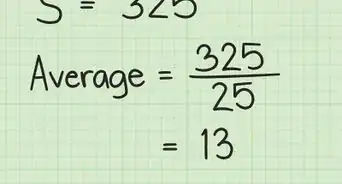 S = 325
Average = 325/25
= 13